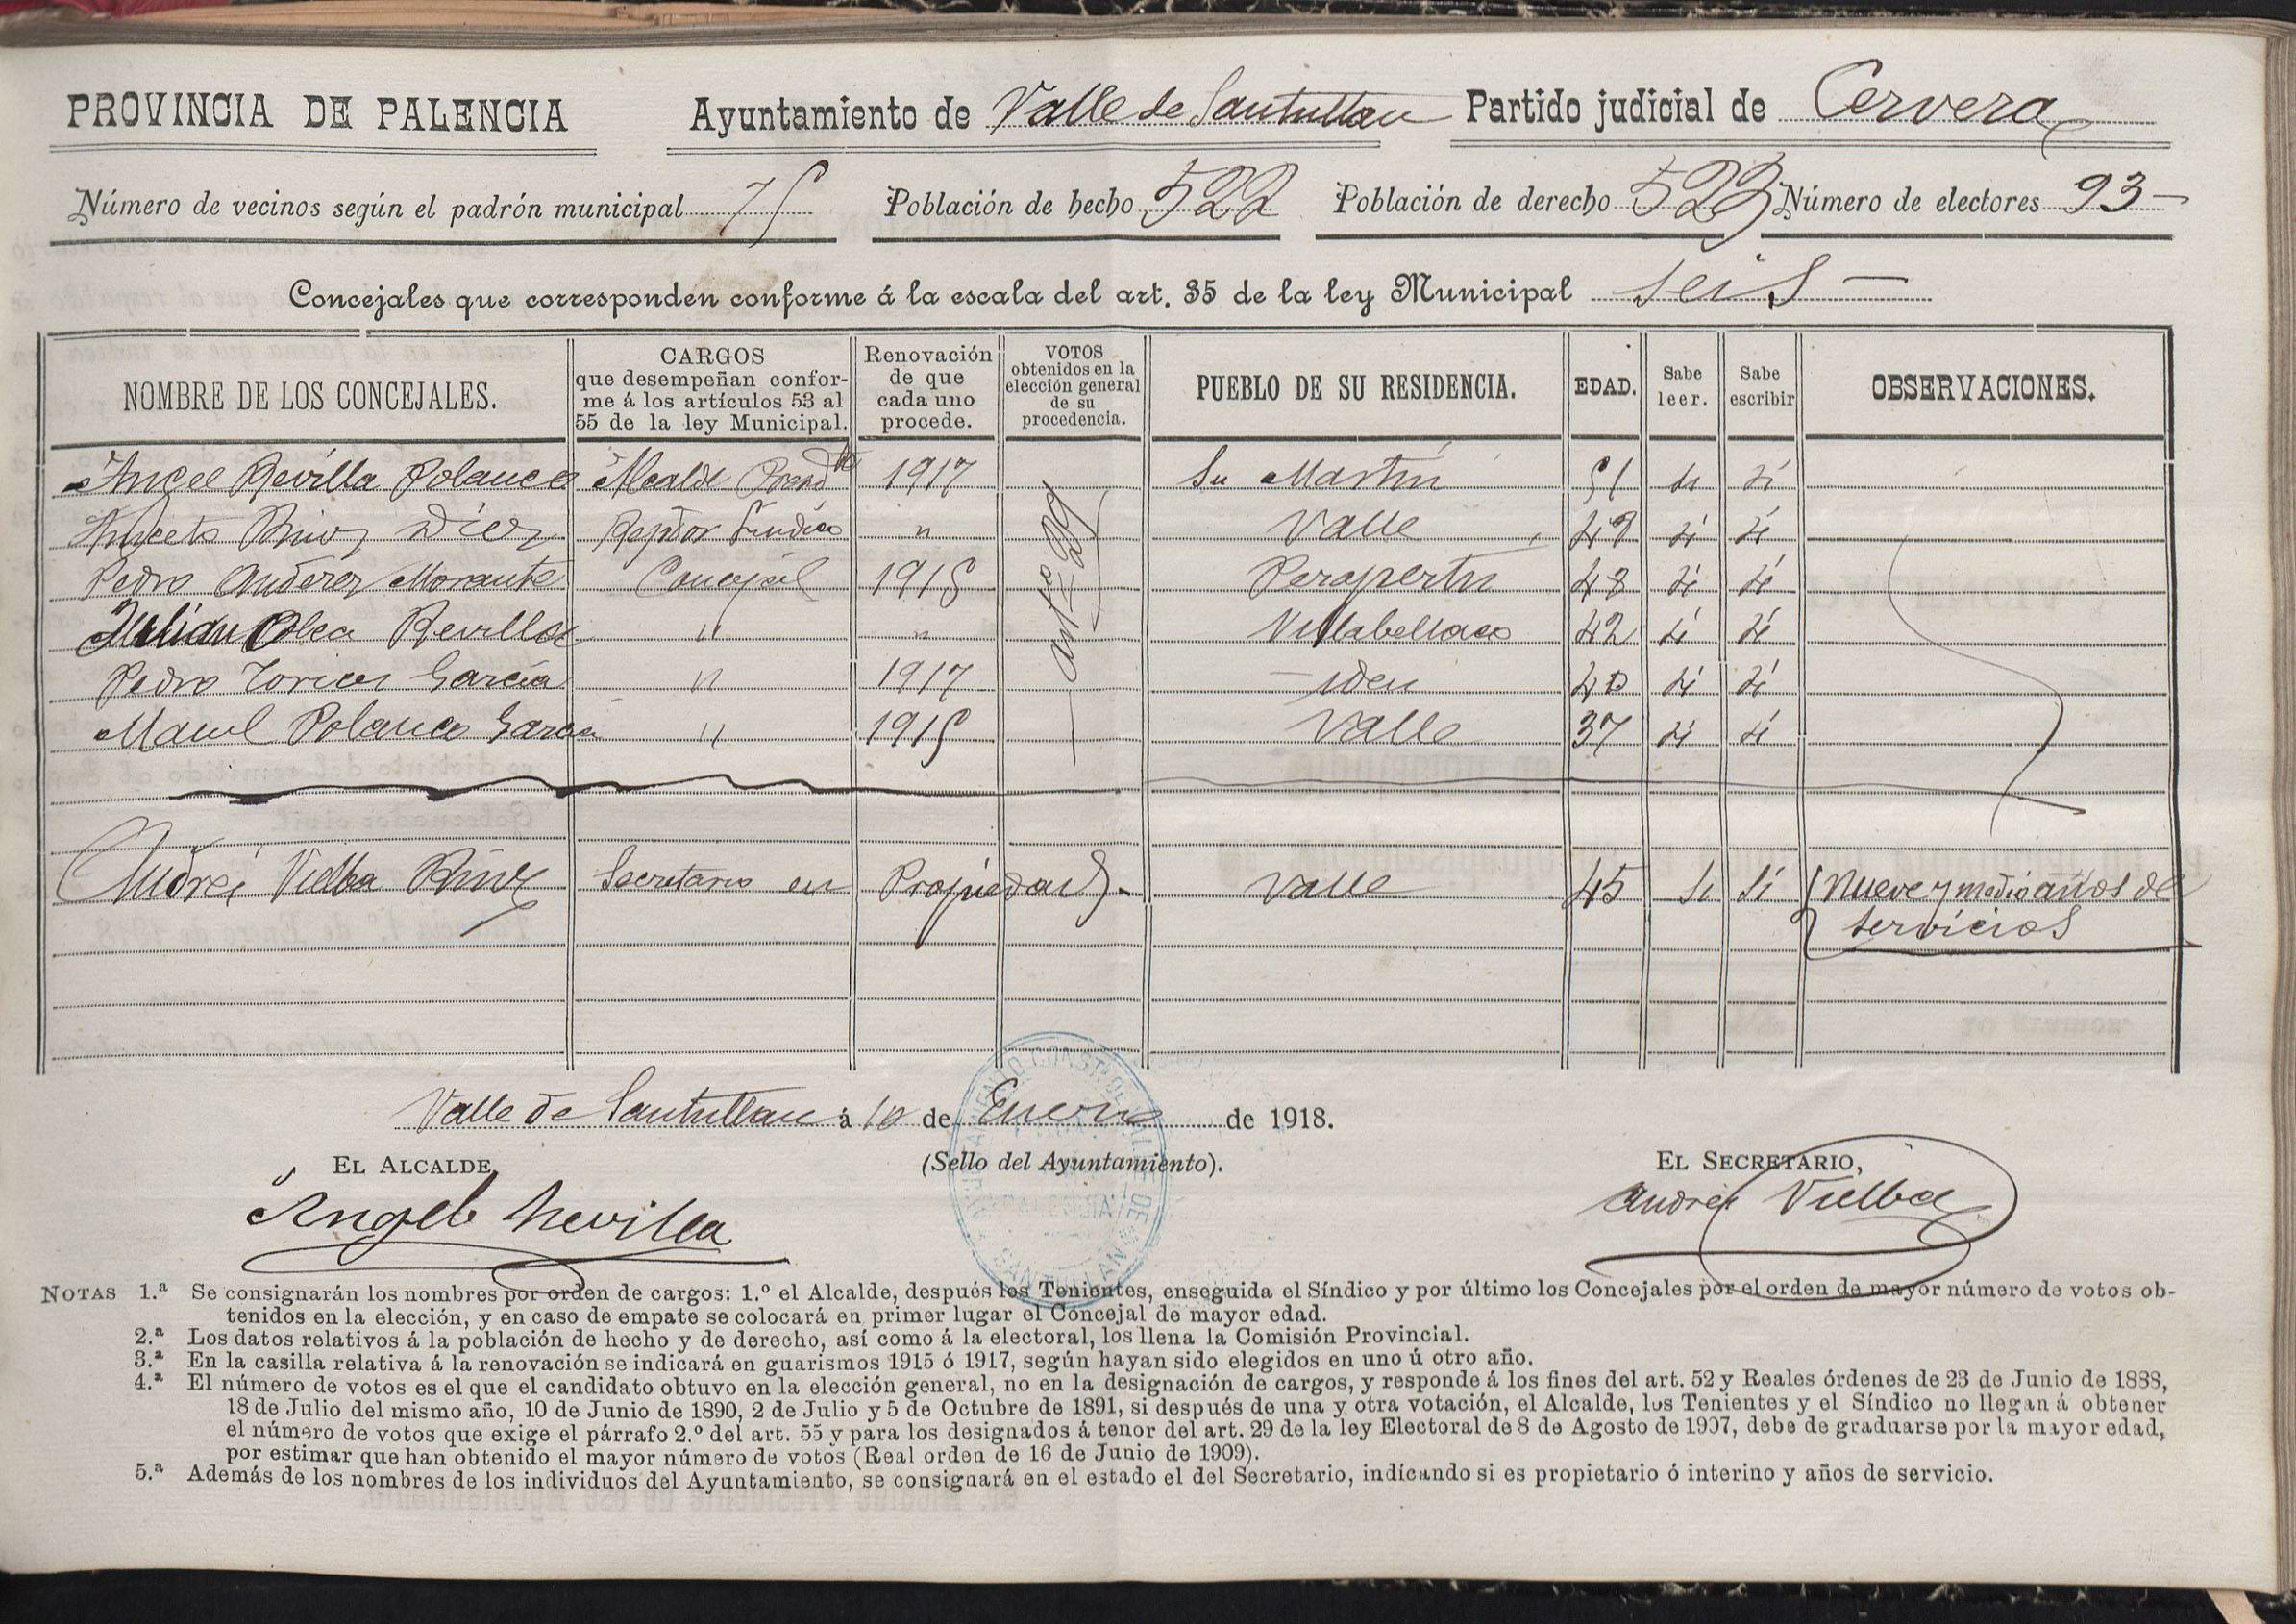 PROVINCIA DE PALENCIA Ayuntamiento de Valle de Santullan Partido judicial de Cervera
Número de vecinos según el padrón municipal 75 Población de hecho 522 Población de derecho 523 Número de electores 93
Concejales que corresponden conforme á la escala del art. 35 de la ley Municipal seis
NOMBRE DE LOS CONCEJALES.
CARGOS
que desempeñan confor-
me á los artículos 53 al
55 de la ley Municipal.
Renovación
de que
cada uno
procede.
VOTOS
obtenidos en la
elección general
de su
procedencia.
PUEBLO DE SU RESIDENCIA.
EDAD.
Sabe
leer.
Sabe
escribir
OBSERVACIONES.
Angel Revilla Polanco Alcalde 1917 Sn Martin 51 si si
Diez Regidor Sindico " Valle 48 si si
Pedro Morante Concejal 1915 Perapertu 48 si si
Julián Revilla " " Villabellaco 42 si si
Pedro Torices García " 1917 iden 40 si si
Manuel Polanco García " 1915 Valle 37 si si
artº 29
Andrés Vielba Secretario en Propiedad. Valle 45 si si Nueve y medio años de
servicios
Valle de Santullan á 10 de Enero de 1918.
EL ALCALDE,
(Sello del Ayuntamiento).
EL SECRETARIO,
Angel Revilla
Andrés Vielba
NOTAS 1.ª Se consignarán los nombres por orden de cargos: 1.º el Alcalde, después los Tenientes, enseguida el Síndico y por último los Concejales por el orden de mayor número de votos ob-
tenidos en la elección, y en caso de empate se colocará en primer lugar el Concejal de mayor edad.
2.ª Los datos relativos á la población de hecho y de derecho, así como á la electoral, los llena la Comisión Provincial.
3.ª En la casilla relativa á la renovación se indicará en guarismos 1915 ó 1917, según hayan sido elegidos en uno ú otro año.
4.ª El número de votos es el que el candidato obtuvo en la elección general, no en la designación de cargos, y responde á los fines del art. 52 y Reales órdenes de 23 de Junio de 1888,
18 de Julio del mismo año, 10 de Junio de 1890, 2 de Julio y 5 de Octubre de 1891, si después de una y otra votación, el Alcalde, los Tenientes y el Síndico no llegan á obtener
el número de votos que exige el párrafo 2.º del art. 55 y para los designados á tenor del art. 29 de la ley Electoral de 8 de Agosto de 1907, debe de graduarse por la mayor edad,
por estimar que han obtenido el mayor número de votos (Real orden de 16 de Junio de 1909).
5.ª Además de los nombres de los individuos del Ayuntamiento, se consignará en el estado el del Secretario, indicando si es propietario ó interino y años de servicio.